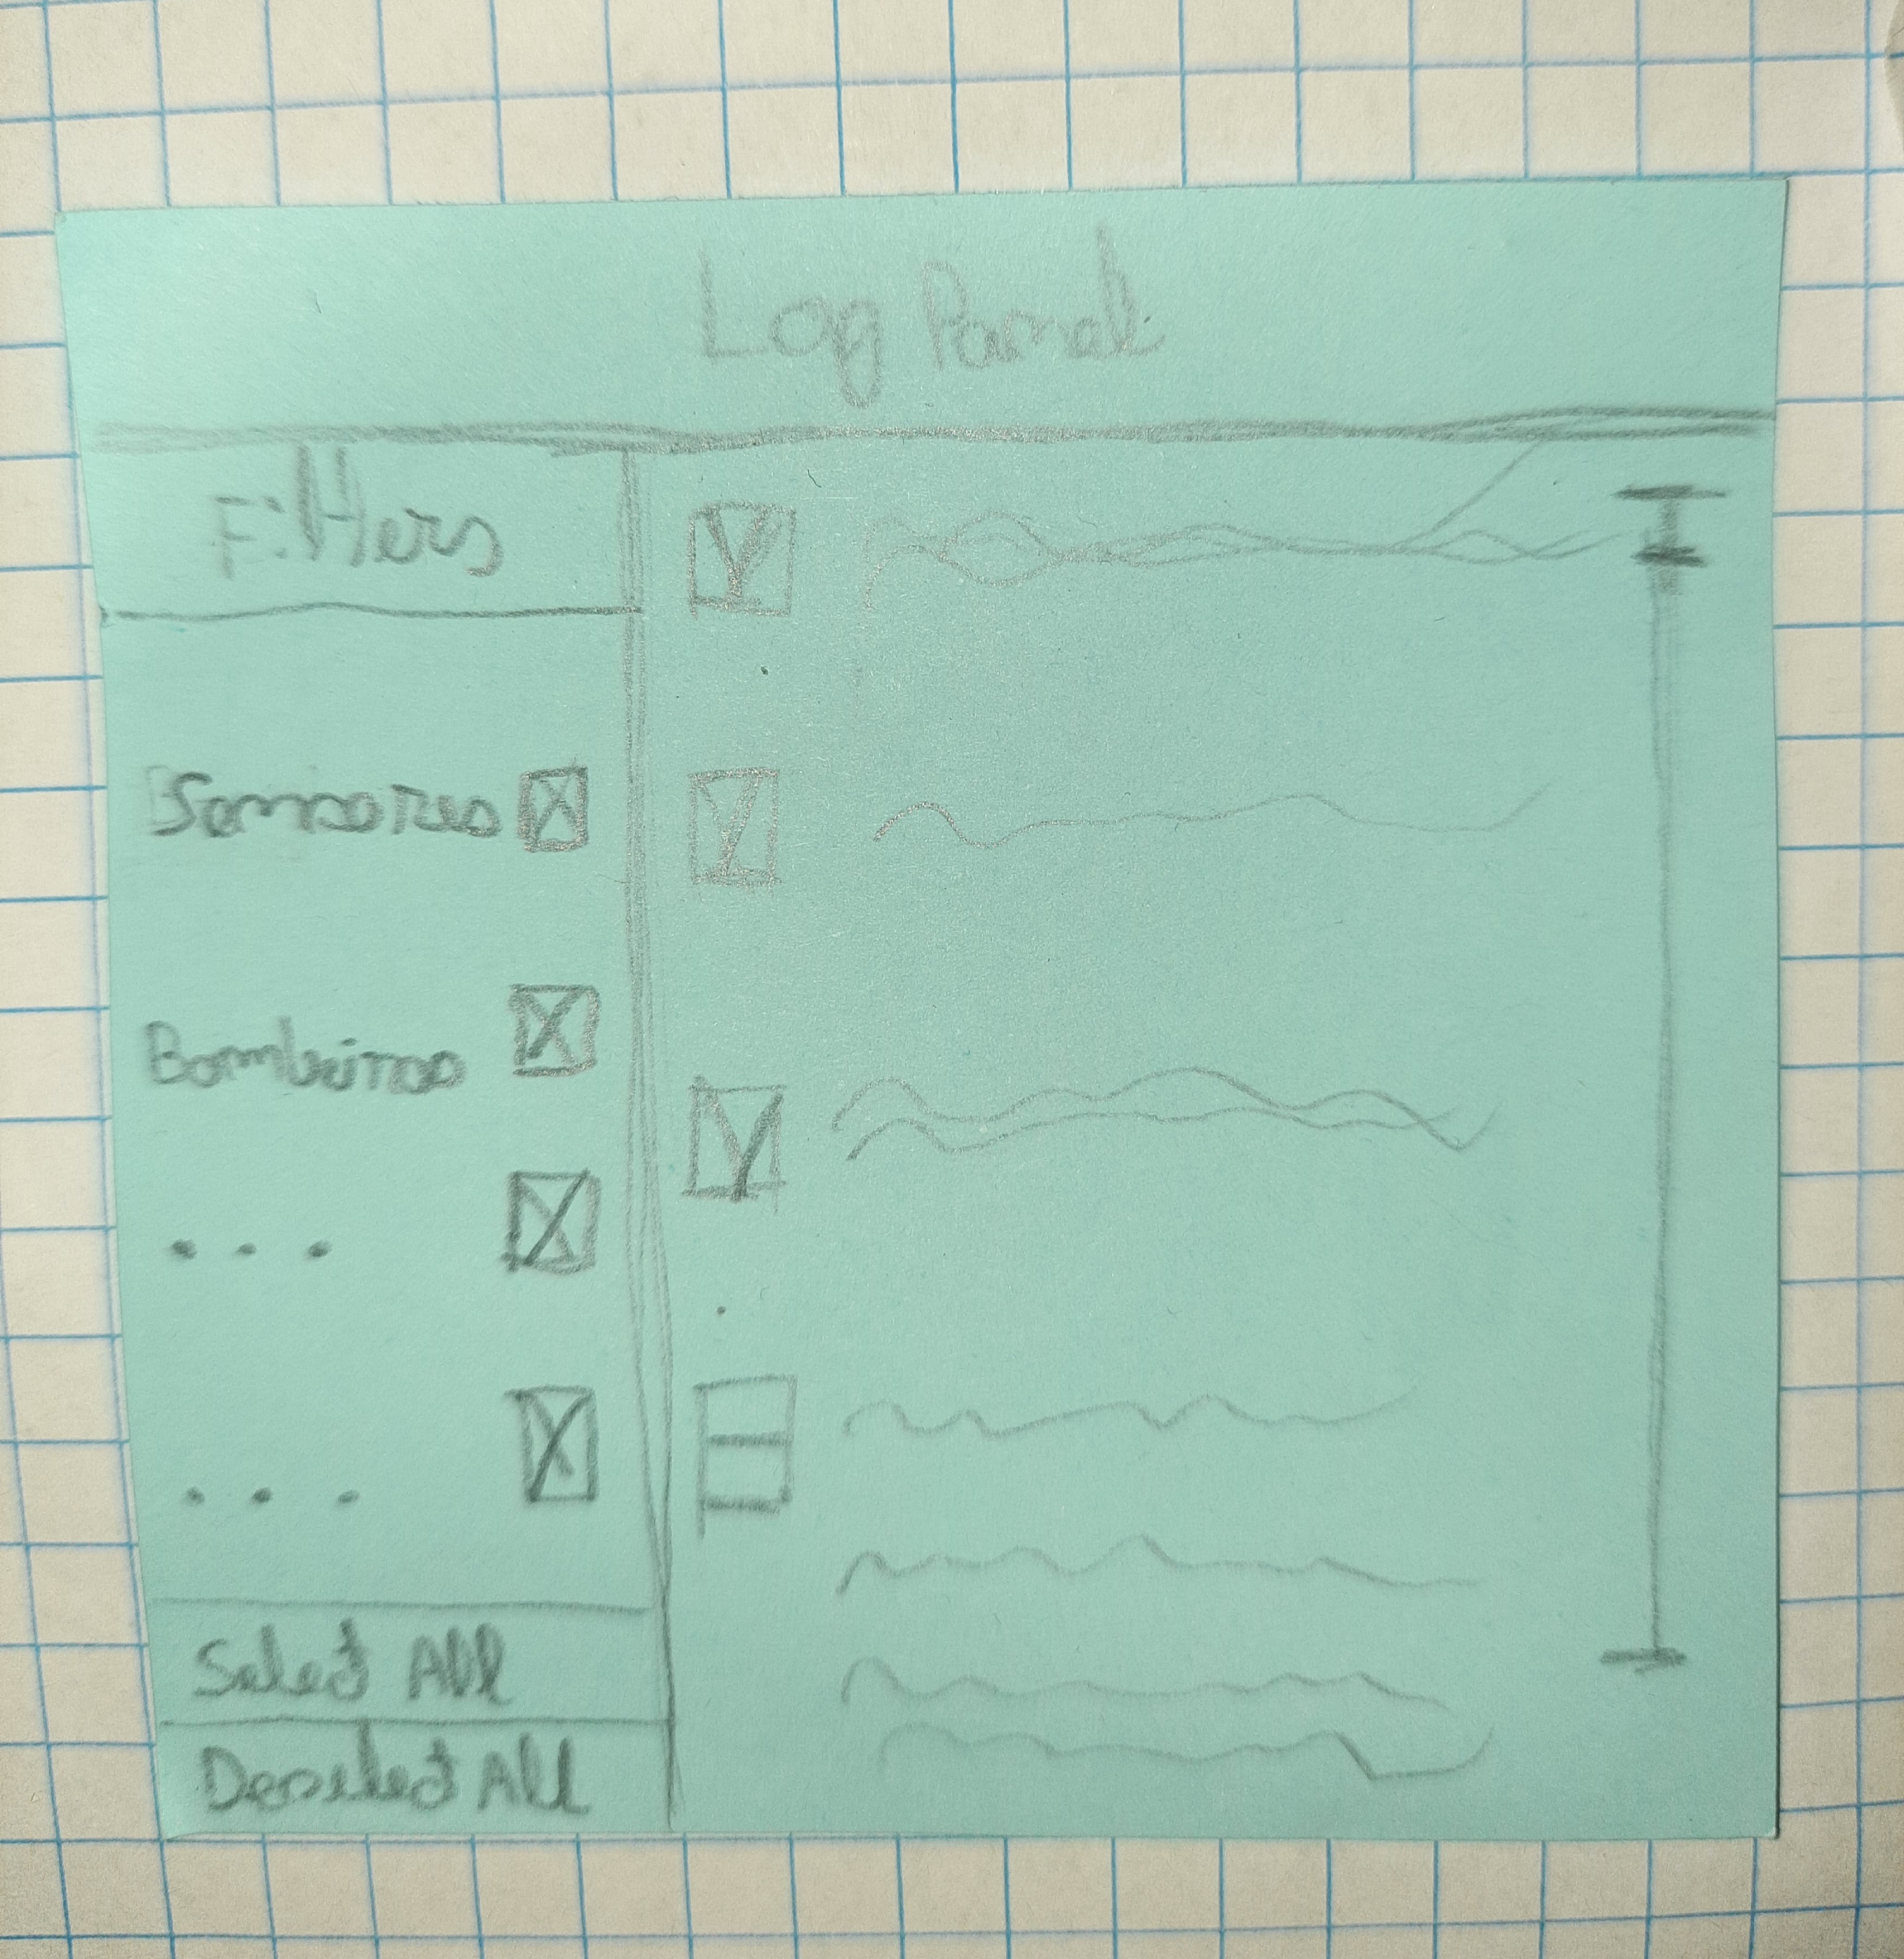 Log Panel
Filters
Sensores X
Bombeiros X
... X
... X
Select All
Deselect All
Y
Y
Y